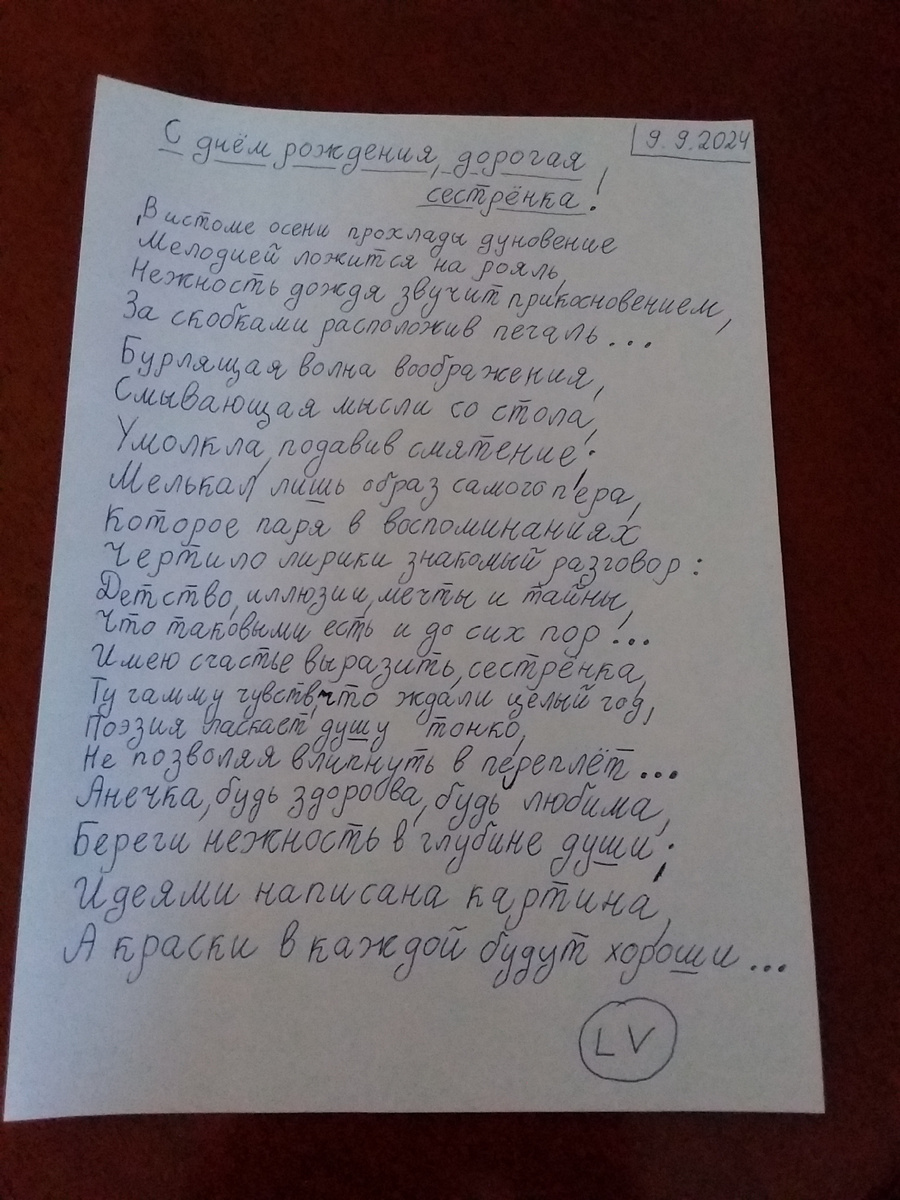 9.9.2024
С днём рождения, дорогая
сестрёнка!
В истоме осени прохлады дуновение
Мелодией ложится на рояль,
Нежность дождя звучит прикосновением,
За скобками расположив печаль...
Бурлящая волна воображения,
Смывающая мысли со стола,
Умолкла, подавив смятение;
Мелькал лишь образ самого пера,
Которое паря в воспоминаниях
Чертило лирики знакомый разговор:
Детство, иллюзии, мечты и тайны,
Что таковыми есть и до сих пор...
Имею счастье выразить, сестрёнка,
Ту гамму чувств, что ждали целый год,
Поэзия ласкает душу тонко,
Не позволяя влипнуть в переплёт...
Анечка, будь здорова, будь любима,
Береги нежность в глубине души;
Идеями написана картина,
А краски в каждой будут хороши...
LV